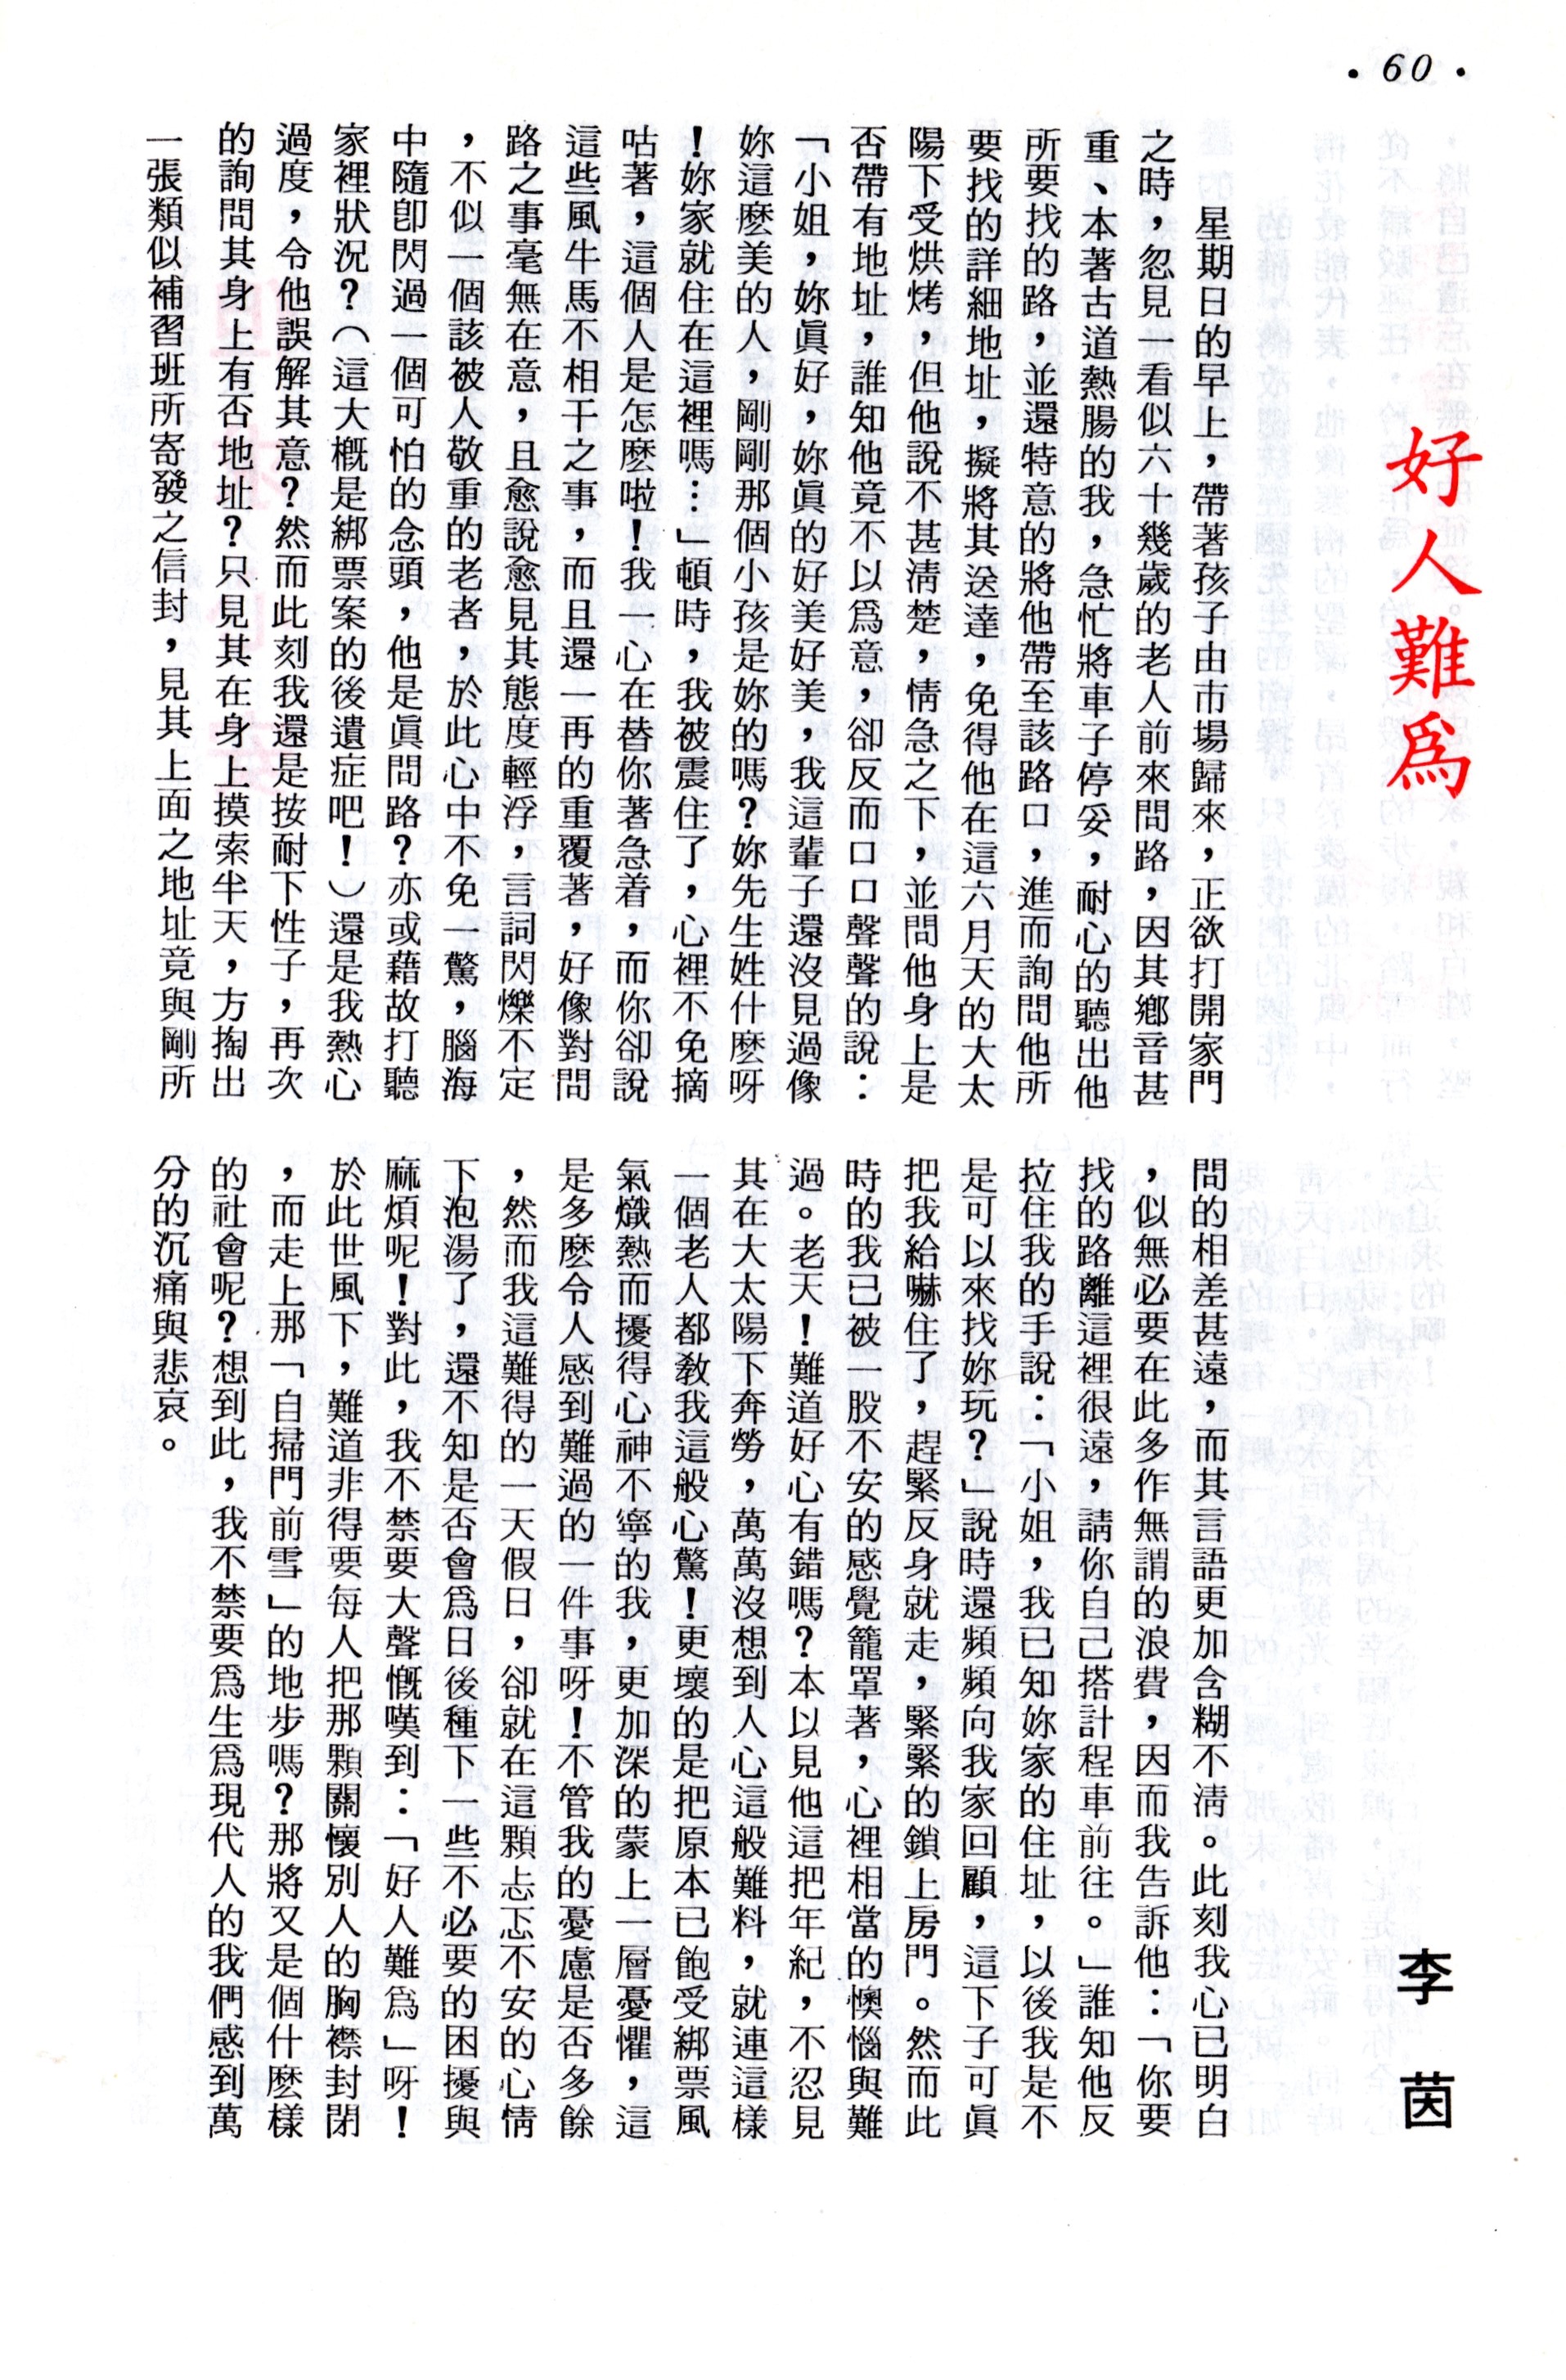 • 60 •
好人難爲
李茵
星期日的早上，帶著孩子由市場歸來，正欲打開家門
之時，忽見一看似六十幾歲的老人前來問路，因其鄉音甚
重、本著古道熱腸的我，急忙將車子停妥，耐心的聽出他
所要找的路，並還特意的將他帶至該路口，進而詢問他所
要找的詳細地址，擬將其送達，免得他在這六月天的大太
陽下受烘烤，但他說不甚清楚，情急之下，並問他身上是
否帶有地址，誰知他竟不以爲意，卻反而口口聲聲的說：
「小姐，妳眞好，妳眞的好美好美，我這輩子還沒見過像
妳這麽美的人，剛剛那個小孩是妳的嗎？妳先生姓什麽呀
！妳家就住在這裡嗎…」頓時，我被震住了，心裡不免摘
咕著，這個人是怎麽啦！我一心在替你著急着，而你卻說
這些風牛馬不相干之事，而且還一再的重覆著，好像對問
路之事毫無在意，且愈說愈見其態度輕浮，言詞閃爍不定
，不似一個該被人敬重的老者，於此心中不免一驚，腦海
中隨卽閃過一個可怕的念頭，他是眞問路？亦或藉故打聽
家裡狀況？（這大概是綁票案的後遺症吧！）還是我熱心
過度，令他誤解其意？然而此刻我還是按耐下性子，再次
的詢問其身上有否地址？只見其在身上摸索半天，方掏出
一張類似補習班所寄發之信封，見其上面之地址竟與剛所
問的相差甚遠，而其言語更加含糊不清。此刻我心已明白
，似無必要在此多作無謂的浪費，因而我告訴他：「你要
找的路離這裡很遠，請你自己搭計程車前往。」誰知他反
拉住我的手說：「小姐，我已知妳家的住址，以後我是不
是可以來找妳玩？」說時還頻頻向我家回顧，這下子可眞
把我給嚇住了，趕緊反身就走，緊緊的鎖上房門。然而此
時的我已被一股不安的感覺籠罩著，心裡相當的懊惱與難
過。老天！難道好心有錯嗎？本以見他這把年紀，不忍見
其在大太陽下奔勞，萬萬沒想到人心這般難料，就連這樣
一個老人都敎我這般心驚！更壞的是把原本已飽受綁票風
氣熾熱而擾得心神不寧的我，更加深的蒙上一層憂懼，這
是多麽令人感到難過的一件事呀！不管我的憂慮是否多餘
，然而我這難得的一天假日，卻就在這顆忐忑不安的心情
下泡湯了，還不知是否會爲日後種下一些不必要的困擾與
麻煩呢！對此，我不禁要大聲慨嘆到：「好人難爲」呀！
於此世風下，難道非得要每人把那顆關懷別人的胸襟封閉
，而走上那「自掃門前雪」的地步嗎？那將又是個什麽樣
的社會呢？想到此，我不禁要爲生爲現代人的我們感到萬
分的沉痛與悲哀。